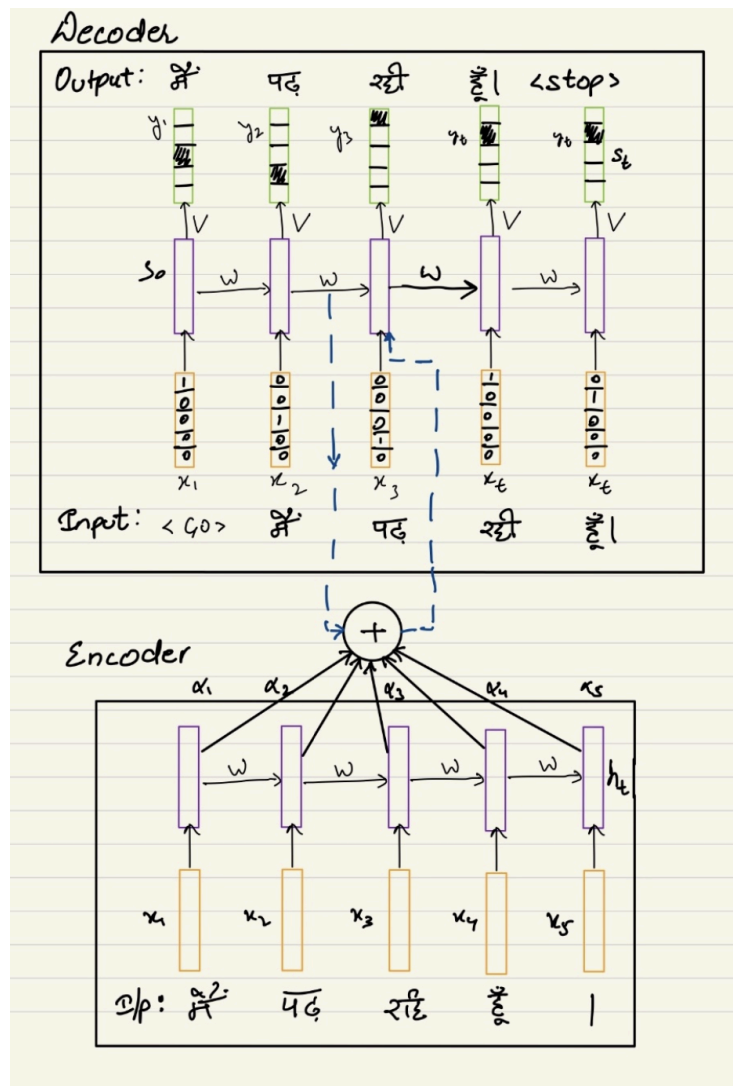 Decoder
Output: मैं पढ़ रही हूँ। <stop>
y₁ y₂ y₃ yₜ yₜ sₜ
V V V V V
s₀ W W W W
1 0 0 1 0
0 0 0 0 1
0 1 0 0 0
0 0 1 0 0
0 0 0 0 0
x₁ x₂ x₃ xₜ xₜ
Input: <GO> मैं पढ़ रही हूँ।
+
Encoder
α₁ α₂ α₃ α₄ α₅
W W W W hₜ
x₁ x₂ x₃ x₄ x₅
I/p: पढ़ हूँ ।